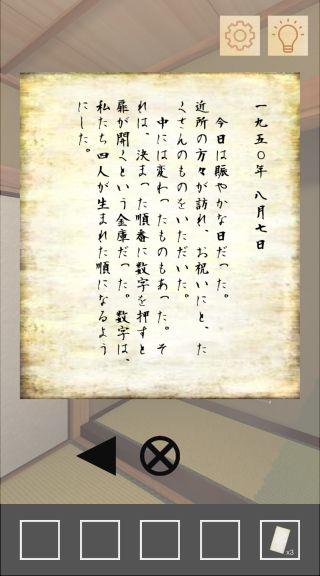 一九五〇年　八月七日
今日は賑やかな日だった。
近所の方々が訪れ、お祝いにと、た
くさんのものをいただいた。
中には変わったものもあった。そ
れは、決まった順番に数字を押すと
扉が開くという金庫だった。数字は、
私たち四人が生まれた順になるよう
にした。
x3